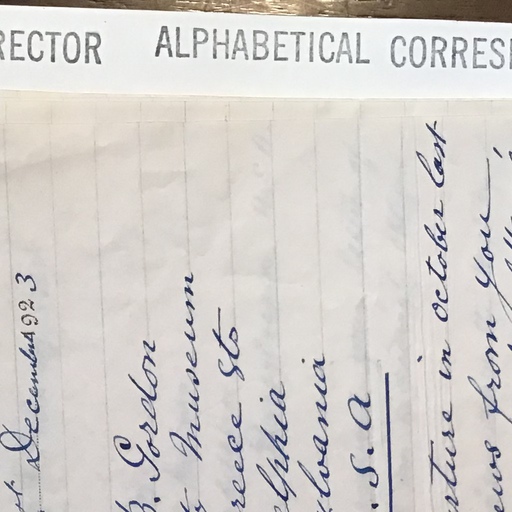 st December 1923
B. Gordon
ty Museum
reece Sts
elphia
ylvania
.S.A
rture in october last
ews from you,
RECTOR ALPHABETICAL CORRES